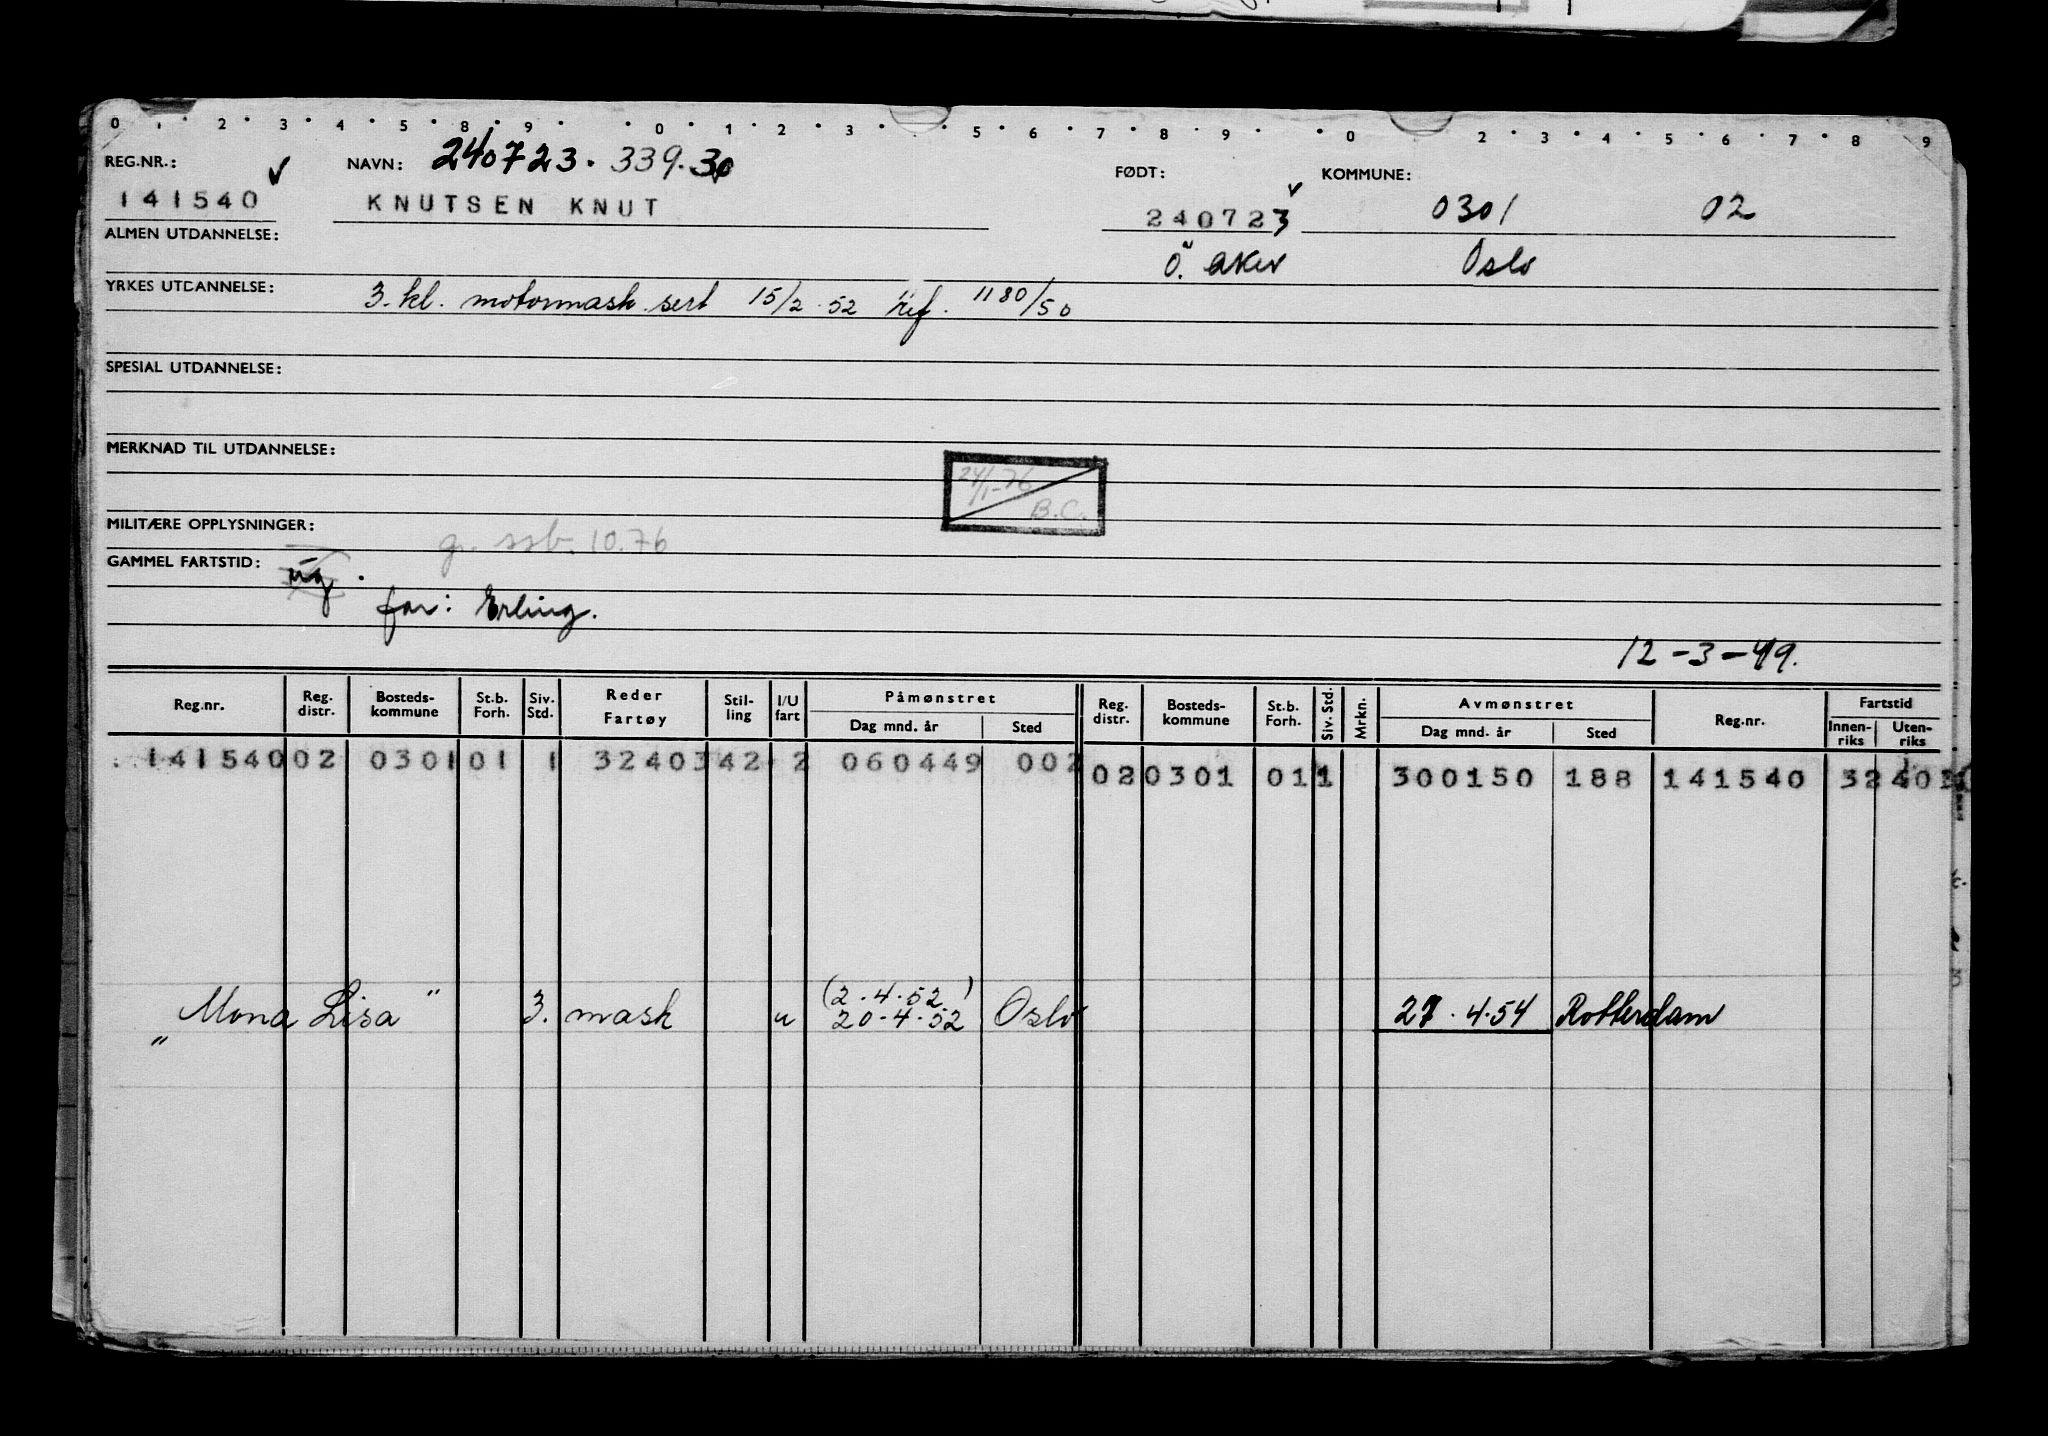 0 1 2 3 4 5 8 9 0 1 2 3 5 6 7 8 9 0 2 3 4 5 6 7 8 9
REG.NR.: NAVN: 240723. 339.30 FØDT: KOMMUNE:
141540 KNUTSEN KNUT 240723 0301 02
ALMEN UTDANNELSE: Ö. aker Oslo
YRKES UTDANNELSE: 3. kl. motormask. sert 15/2. 52 Ref. 1180/50
SPESIAL UTDANNELSE:
MERKNAD TIL UTDANNELSE:
24/1-76
B.C.
MILITÆRE OPPLYSNINGER: ssb. 10.76
GAMMEL FARTSTID:
far: Erling.
12-3-49.
Reg.nr. Reg. distr. Bosteds- kommune St.b. Forh. Siv. Std. Reder Fartøy Stil- ling I/U fart Påmønstret Dag mnd. år Sted Reg. distr. Bosteds- kommune St.b. Forh. Siv. Std. Mrkn. Avmønstret Dag mnd. år Sted Reg.nr. Fartstid Innen- riks Uten- riks
141540 02 0301 01 1 32403 42 2 060449 002 02 0301 01 1 300150 188 141540 32 40
(2.4.52)
"Mona Lisa" 3. mask u 20-4-52 Oslo 27.4.54 Rotterdam